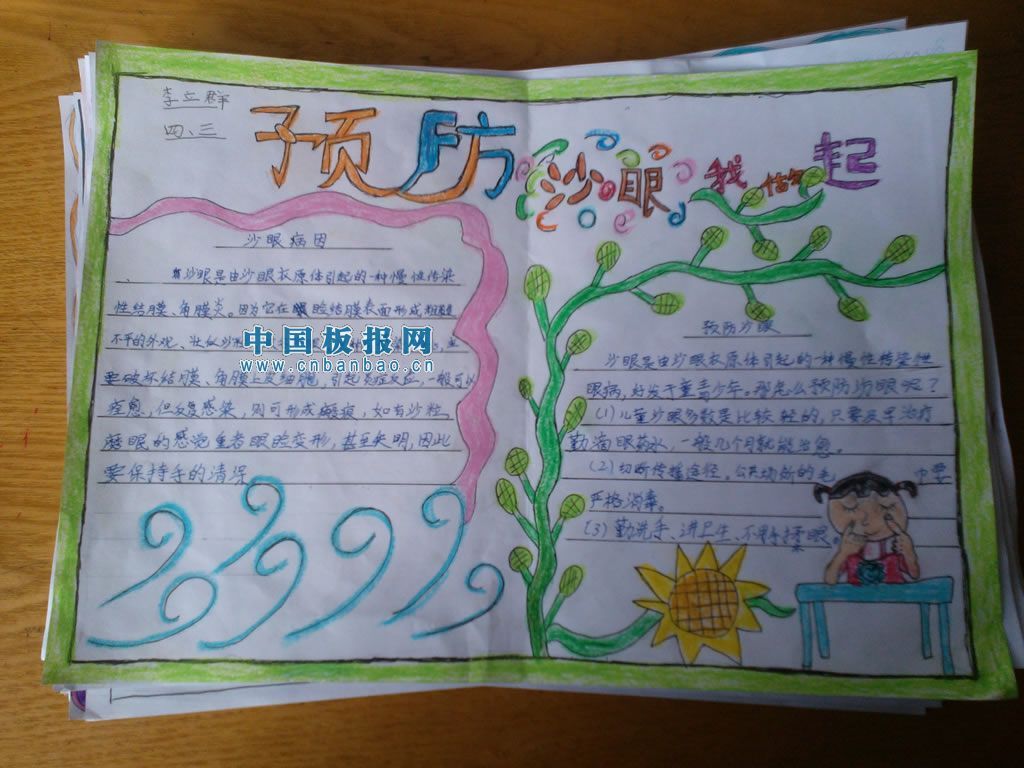 李立群
四、三
预防沙眼我做起
沙眼病因
沙眼是由沙眼衣原体引起的一种慢性传染
性结膜、角膜炎。因为它在眼睑结膜表面形成粗糙
不平的外观、状似沙
中国板报网
www.cnbanbao.cn
要破坏结膜、角膜上皮细胞，引起炎症反应，一般可以
痊愈，但反复感染，则可形成瘢痕，如有沙粒
磨眼的感觉重者眼睑变形，甚至失明，因此
要保持手的清洁
预防沙眼
沙眼是由沙眼衣原体引起的一种慢性传染性
眼病，好发于童青少年。那怎么预防沙眼呢？
(1)儿童沙眼多数是比较轻的，只要及早治疗
勤滴眼药水，一般几个月就能治愈。
(2)切断传播途径。公共场所的毛 中要
严格消毒。
(3)勤洗手、讲卫生、不用手揉眼。